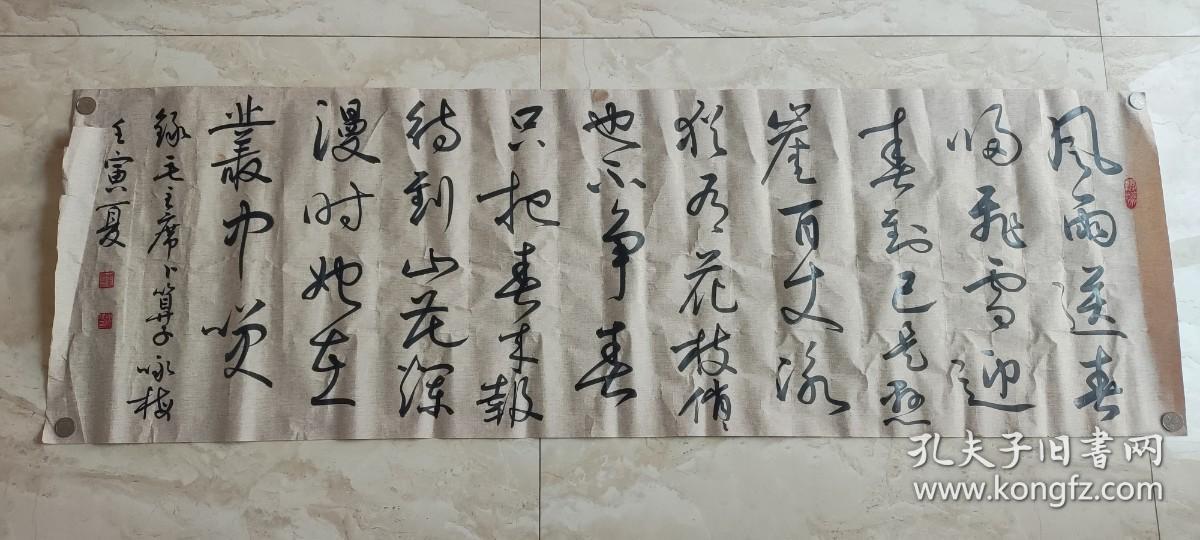 风雨送春
归飛雪迎
春到已是懸
崖百丈冰
猶有花枝俏
也不争春
只把春来報
待到山花爛
漫时她在
叢中咲
録毛主席卜算子咏梅
壬寅夏
孔夫子旧书网
www.kongfz.com